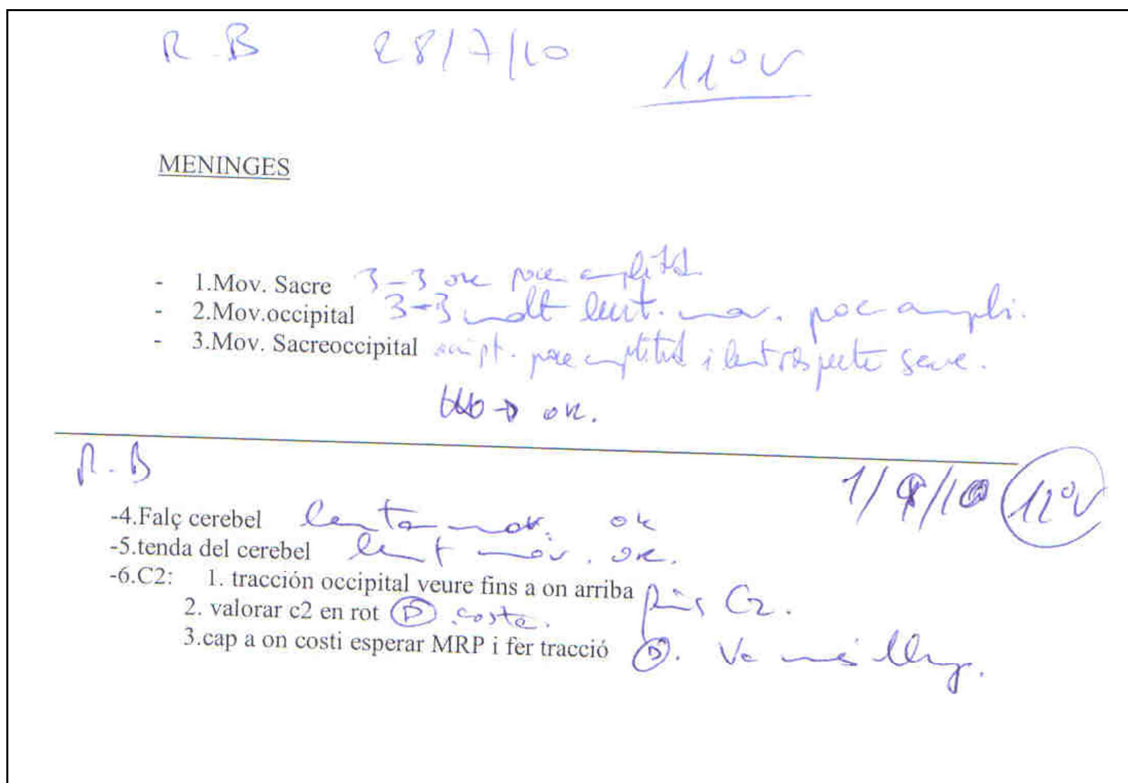 R.B 28/7/10 11ºV
MENINGES
- 1.Mov. Sacre 3-3 ok poca amplitud
- 2.Mov.occipital 3-3 molt lent. mov. poc ampli.
- 3.Mov. Sacreoccipital occipit. poca amplitud i lent respecte sacre.
→ ok.
R.B 1/9/10 12ºV
-4.Falç cerebel lenta mov. ok
-5.tenda del cerebel lent mov. ok.
-6.C2: 1. tracción occipital veure fins a on arriba fins C2.
2. valorar c2 en rot D costa.
3.cap a on costi esperar MRP i fer tracció D. Va més lluny.